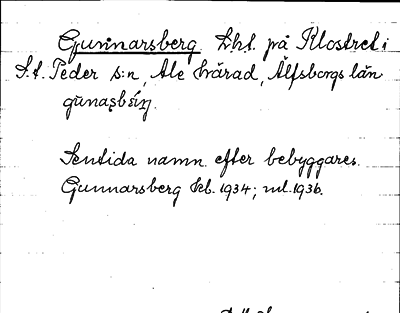 Gunnarsberg. Lht. på Klostret i
S.t. Peder s:n, Ale härad, Älfsborgs län
gùnaʂbǽrj.
Sentida namn efter bebyggares.
Gunnarsberg kb. 1934; ml. 1936.